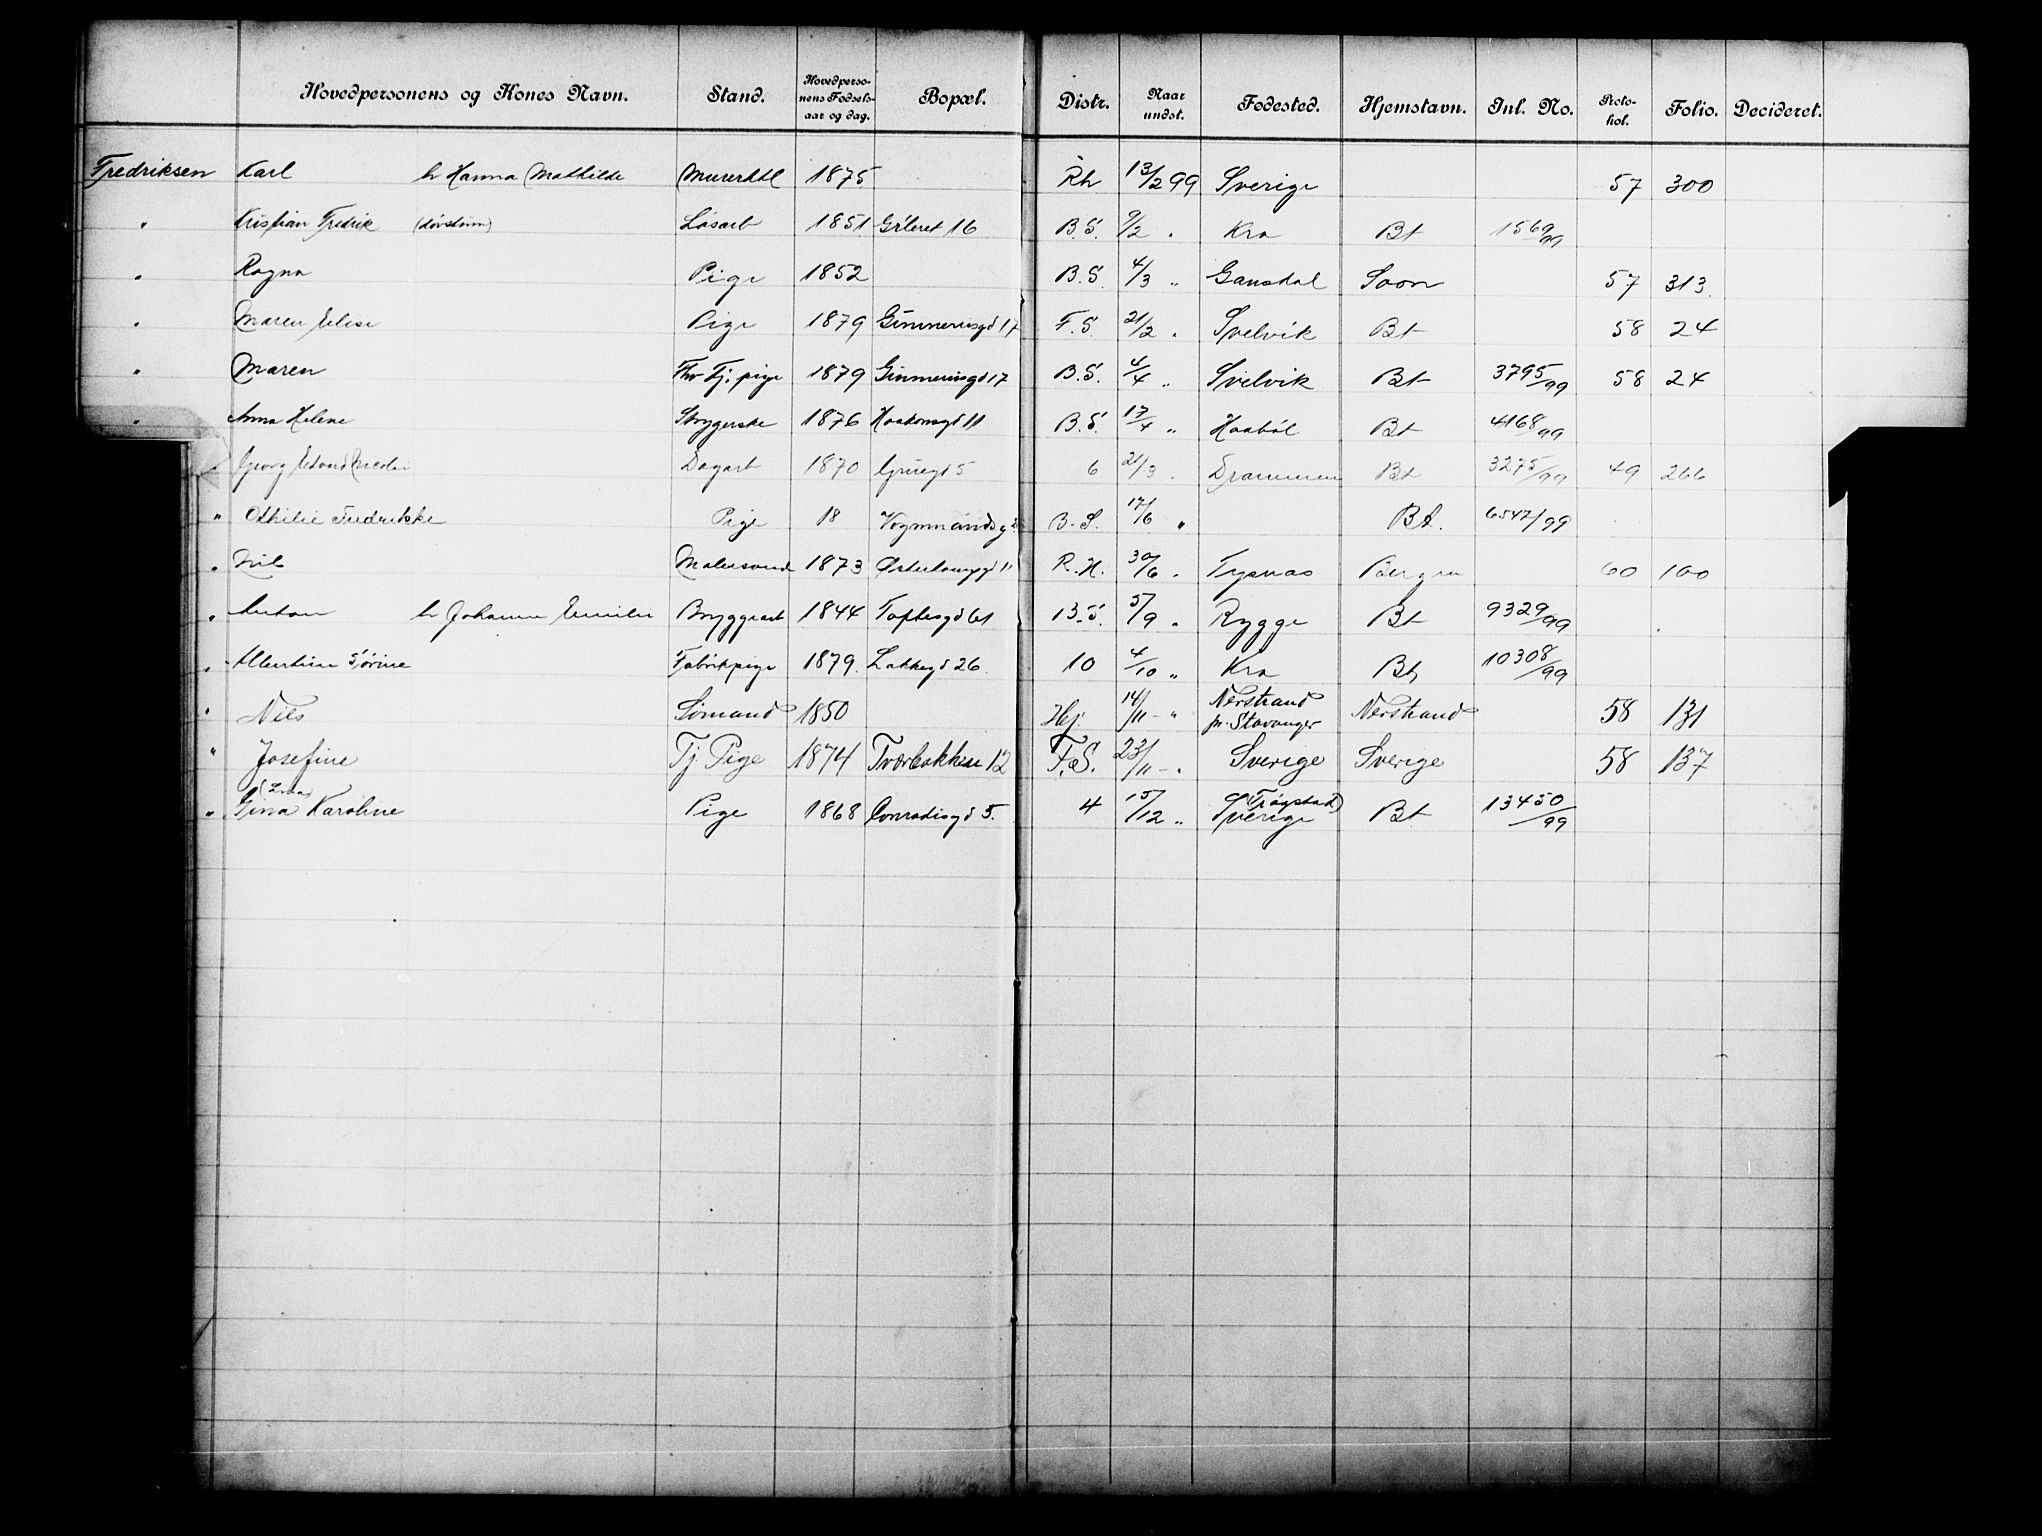 Hovedpersonens og Kones Navn. Stand. Hovedpersonens Fødselsaar og dag. Bopæl. Distr. Naar undst. Fødested. Hjemstavn. Inl. No. Protokol. Folio. Decideret.
Fredriksen Karl h Hanna Mathilde Murerhdl 1875 Rh 13/2 99 Sverige 57 300
" Kristian Fredrik Løsarb 1851 Grôleret 16 B.S. 9/2 " Kra Bt 1569/99
" Ragna Pige 1852 B.S. 4/3 " Gansdal Soon 57 313.
" Maren Elise Pige 1879 17 F.S. 21/2 " Svelvik Bt 58 24
" Maren Fhv Tj. pige 1879 17 B.S. 4/4 " Svelvik Bt 3795/99 58 24
" Anna Helene Strygerske 1876 Haakonsgd 11 B.S. 17/4 " Haabøl Bt 4168/99
" Georg Edvard Nicolai Dagarb 1870 Gruegd 5 6 21/3 " Drammen Bt 3275/99 49 266
" Othilie Fredrikke Pige 18 Vognmandsg B.S. 17/6 " Bt. 6547/99
" Nils Malersvend 1873 11 R.H. 30/6 " Tysnæs Bergen 60 100
" Anton h Johanne Emilie Bryggearb 1844 Toftesgd 61 B.S. 5/9 " Rygge Bt 9329/99
" Albertine Tjørine Fabrikpige 1879. Lakkegd 26 10 4/10 " Kra Bt 10308/99
" Nils Sømand 1850 Hj. 14/11 - " Nerstrand pr. Stavanger Nerstrand 58 131
" Josefine Tj. Pige 1874 Tværbakken 12 F.S. 23/11 - " Sverige Sverige 58 137
" Gina Karoline Pige 1868 Conradisgd 5. 4 15/12 " Sverige (Trøgstad) Bt 13450/99